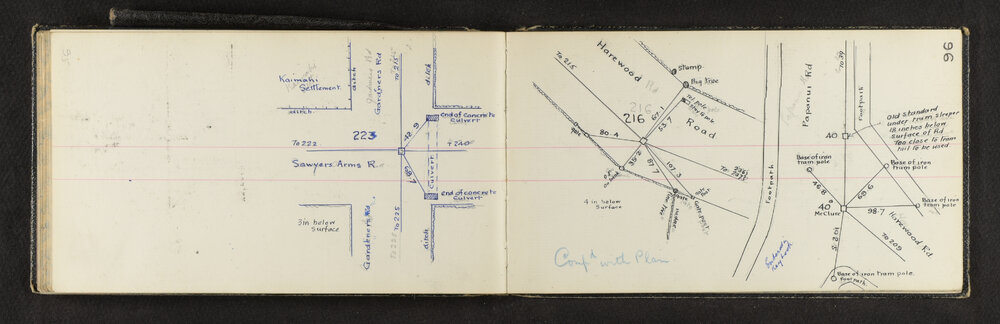 Kaimahi
Settlement.
ditch.
ditch
Gardners Rd
To 215
ditch
end of concrete
culvert
223
42.9
To 222
Sawyers Arms R.
Culvert
end of concrete
culvert
3 in below
Surface
Gardners Rd
To 225
ditch
96
To 215
Harewood
Rd
Stump
Big Tree
216
216
67.1
53.7
Road
80.4
35.2
87.7
107.3
Gate Posts
4 in below
Surface
Comp'd with Plan.
Footpath
Papanui Rd
To 39
Footpath
40
Old Standard
under tram sleeper
18 inches below
Surface of Rd
Too close to tram
rail to be used.
Base of iron
tram pole
Base of iron
tram pole
46.8
60.6
40
McClure
98.7
Base of iron
tram pole
Harewood Rd
To 209
102.5
Base of iron tram pole
Footpath